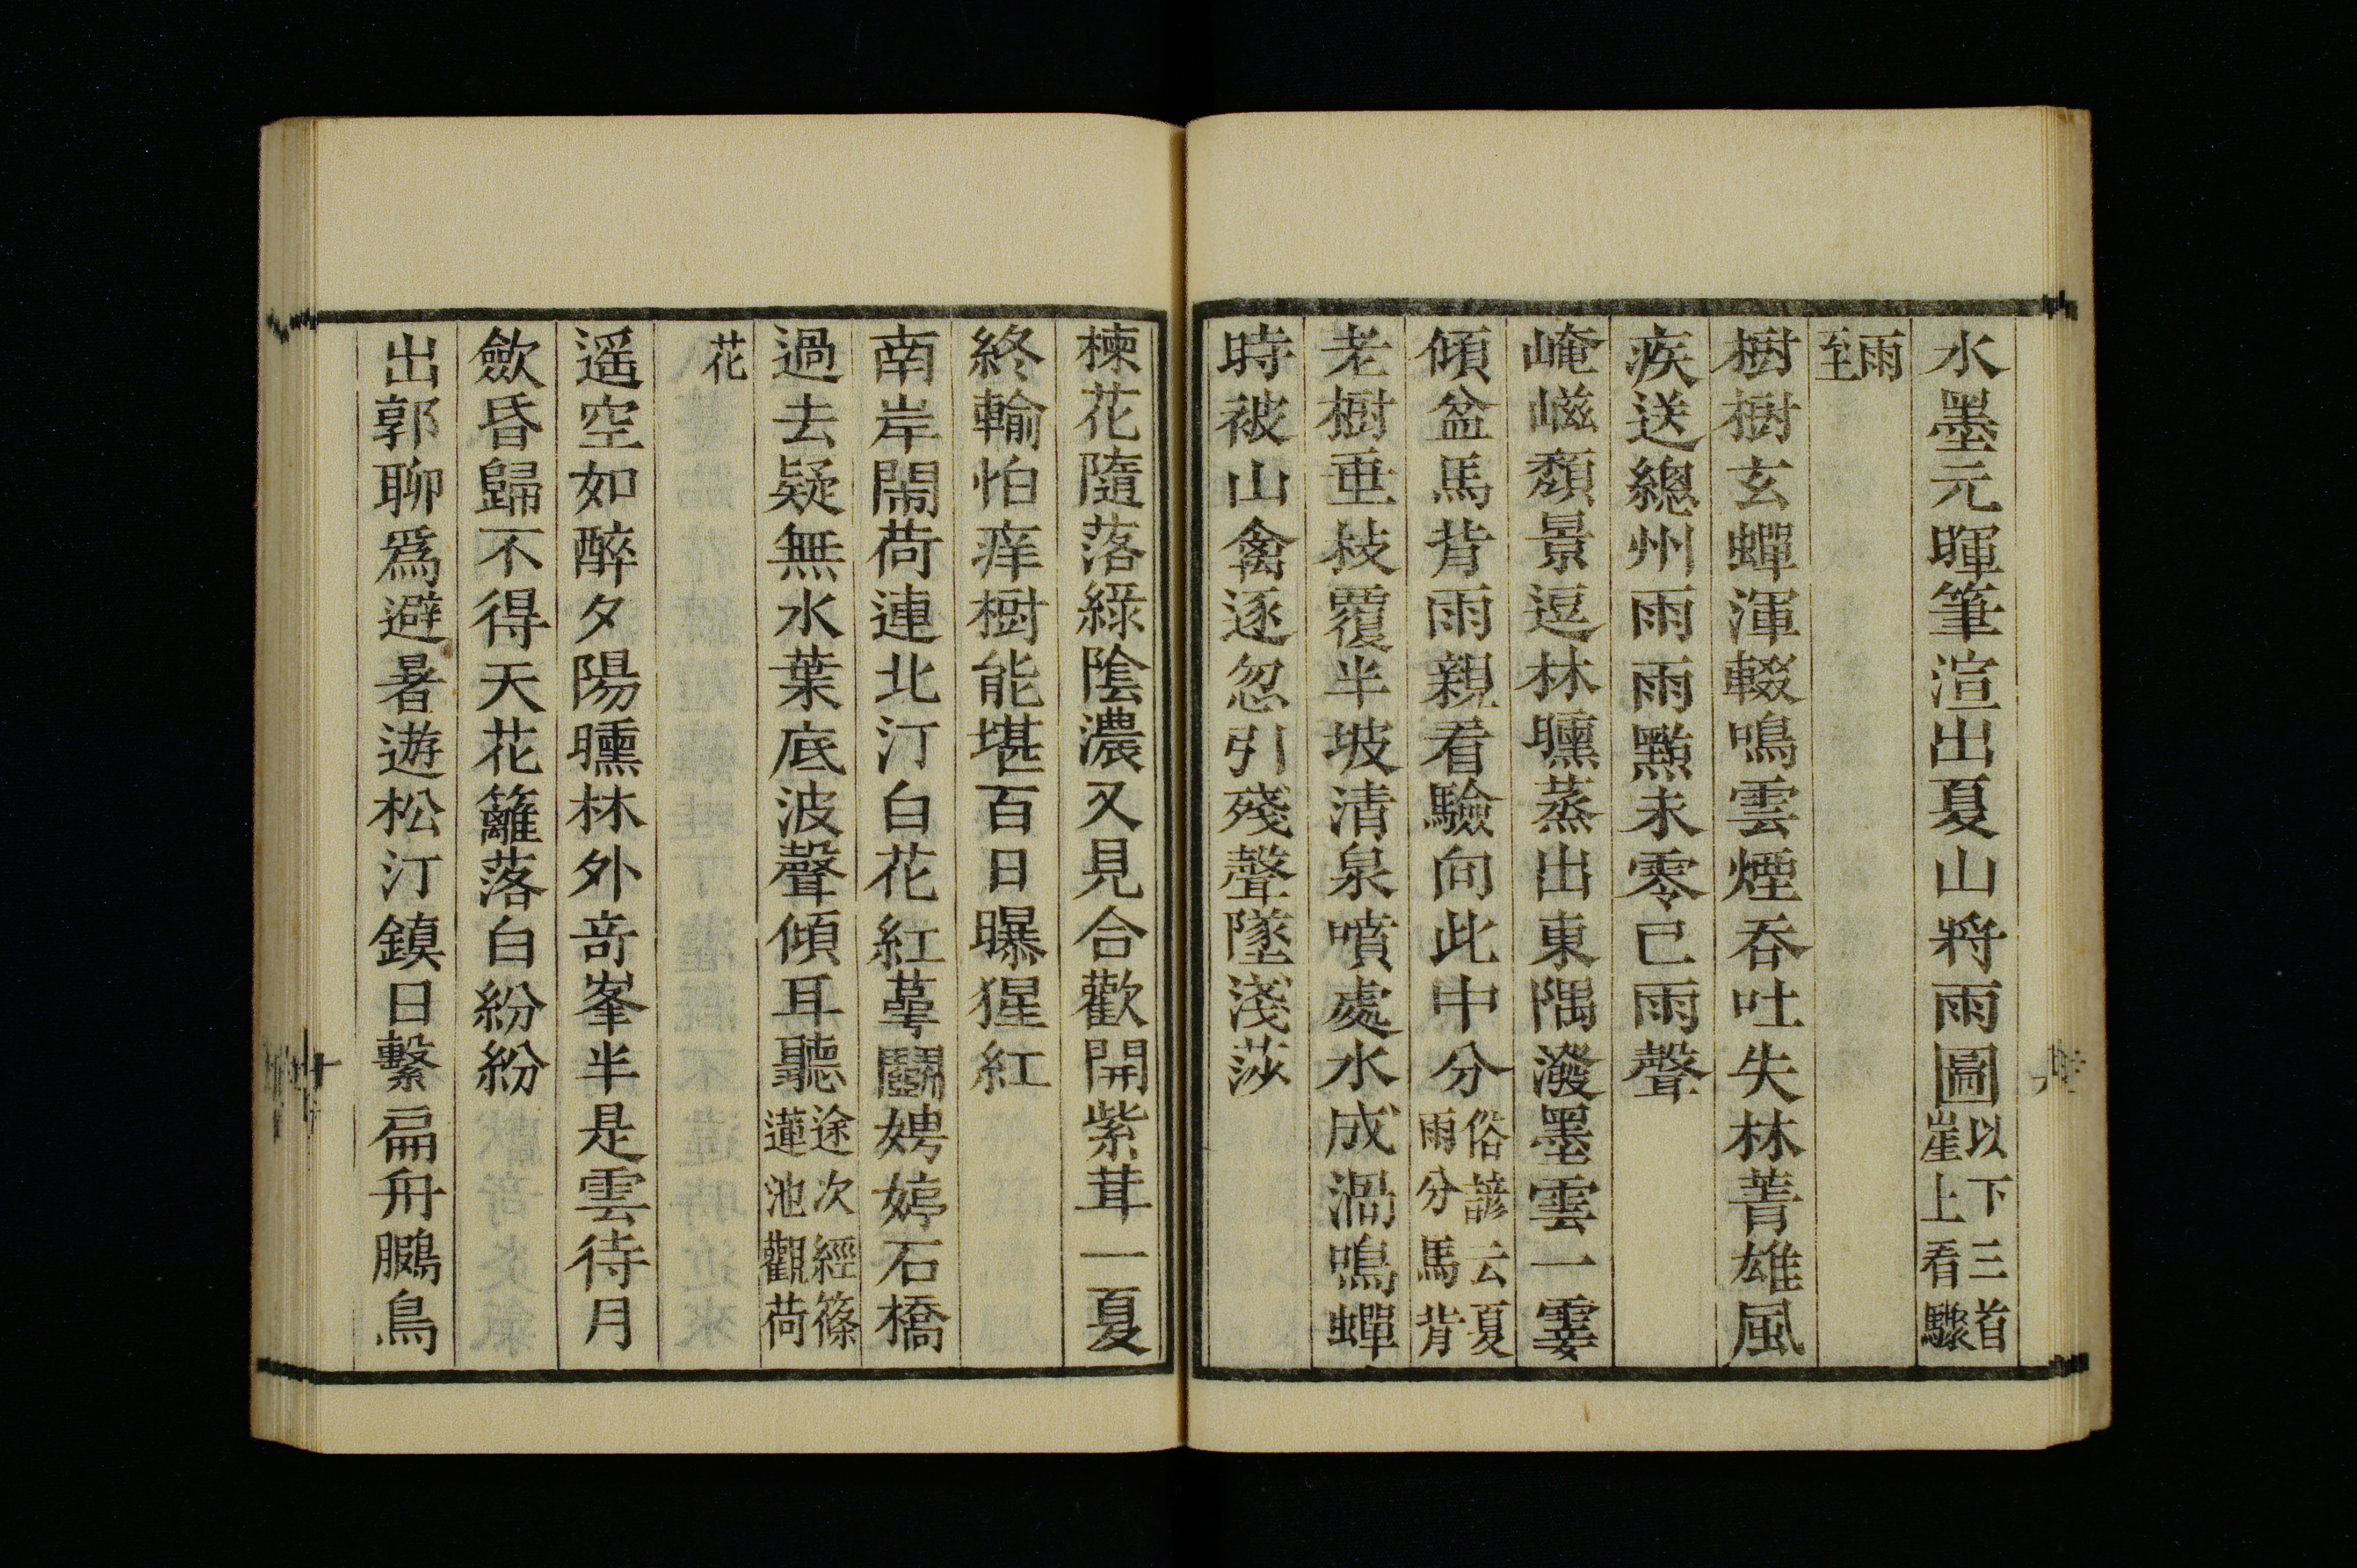 水墨元暉筆渲出夏山將雨圖以下三首崖上看驟
雨至
樹樹玄蟬渾輟鳴雲煙吞吐失林菁雄風
疾送總州雨雨點未零已雨聲
崦嵫頹景逗林曛蒸出東隅潑墨雲一霎
傾盆馬背雨親看驗向此中分俗諺云夏雨分馬背
老樹垂枝覆半坡清泉噴處水成渦鳴蟬
時被山禽逐忽引殘聲墜淺莎
楝花隨落綠陰濃又見合歡開紫茸一夏
終輸怕痒樹能堪百日曝猩紅
南岸鬧荷連北汀白花紅萼鬪娉婷石橋
過去疑無水葉底波聲傾耳聽途次經篠蓮池觀荷
花
遥空如醉夕陽曛林外奇峯半是雲待月
歛昏歸不得天花籬落白紛紛
出郭聊爲避暑遊松汀鎮日繫扁舟鸊鳥
九
十